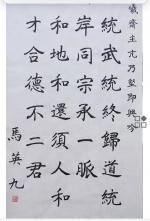 齋主亢乃堅即興吟
統武統終歸道統
岸同宗承一脈
和地和還須人和
才合德不二君
馬英九